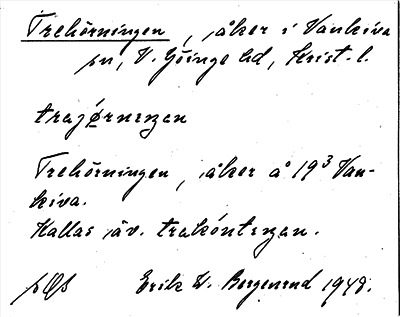 Trehörningen, åker i Vankiva
sn, V. Göinge hd, Krist. l.
trajø̣rnengan
Trehörningen, åker å 19³ Van-
kiva.
Kallas äv. trakóntengan.
Erik W. Bergenrud 1948.